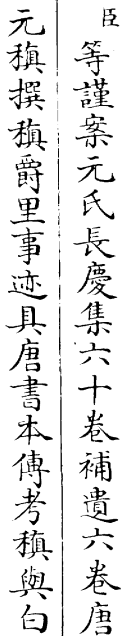 臣等謹案元氏長慶集六十卷補遺六卷唐
元稹撰稹爵里事迹具唐書本傳考稹與白